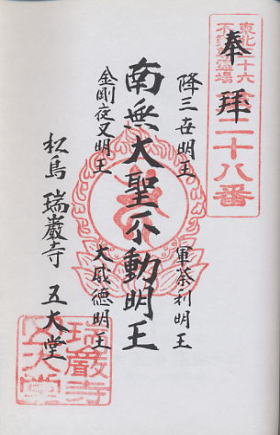 奉拝
東北三十六
不動尊霊場
第二十八番
降三世明王
軍荼利明王
南無大聖不動明王
金剛夜叉明王
大威徳明王
松島 瑞巌寺 五大堂
瑞巌寺
五大堂